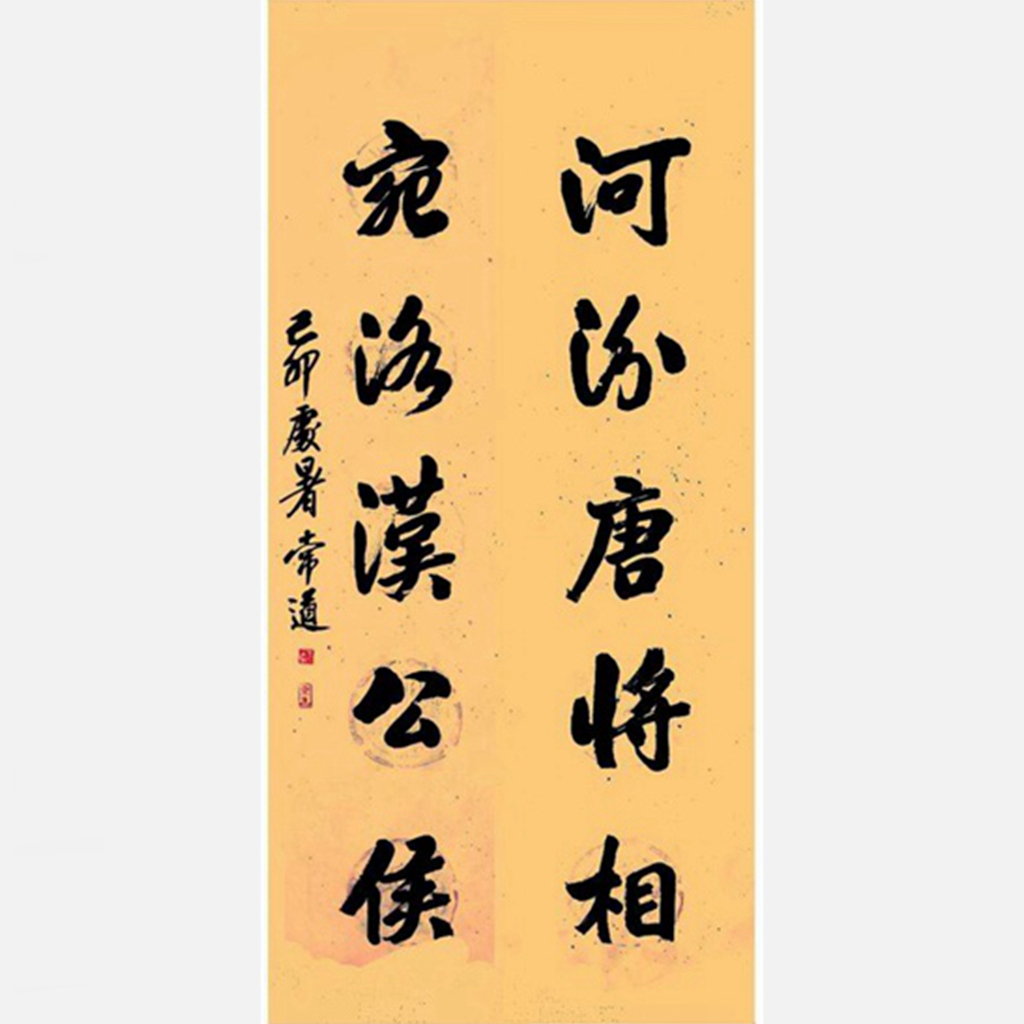 河汾唐将相
宛洛漢公侯
己卯處暑常道